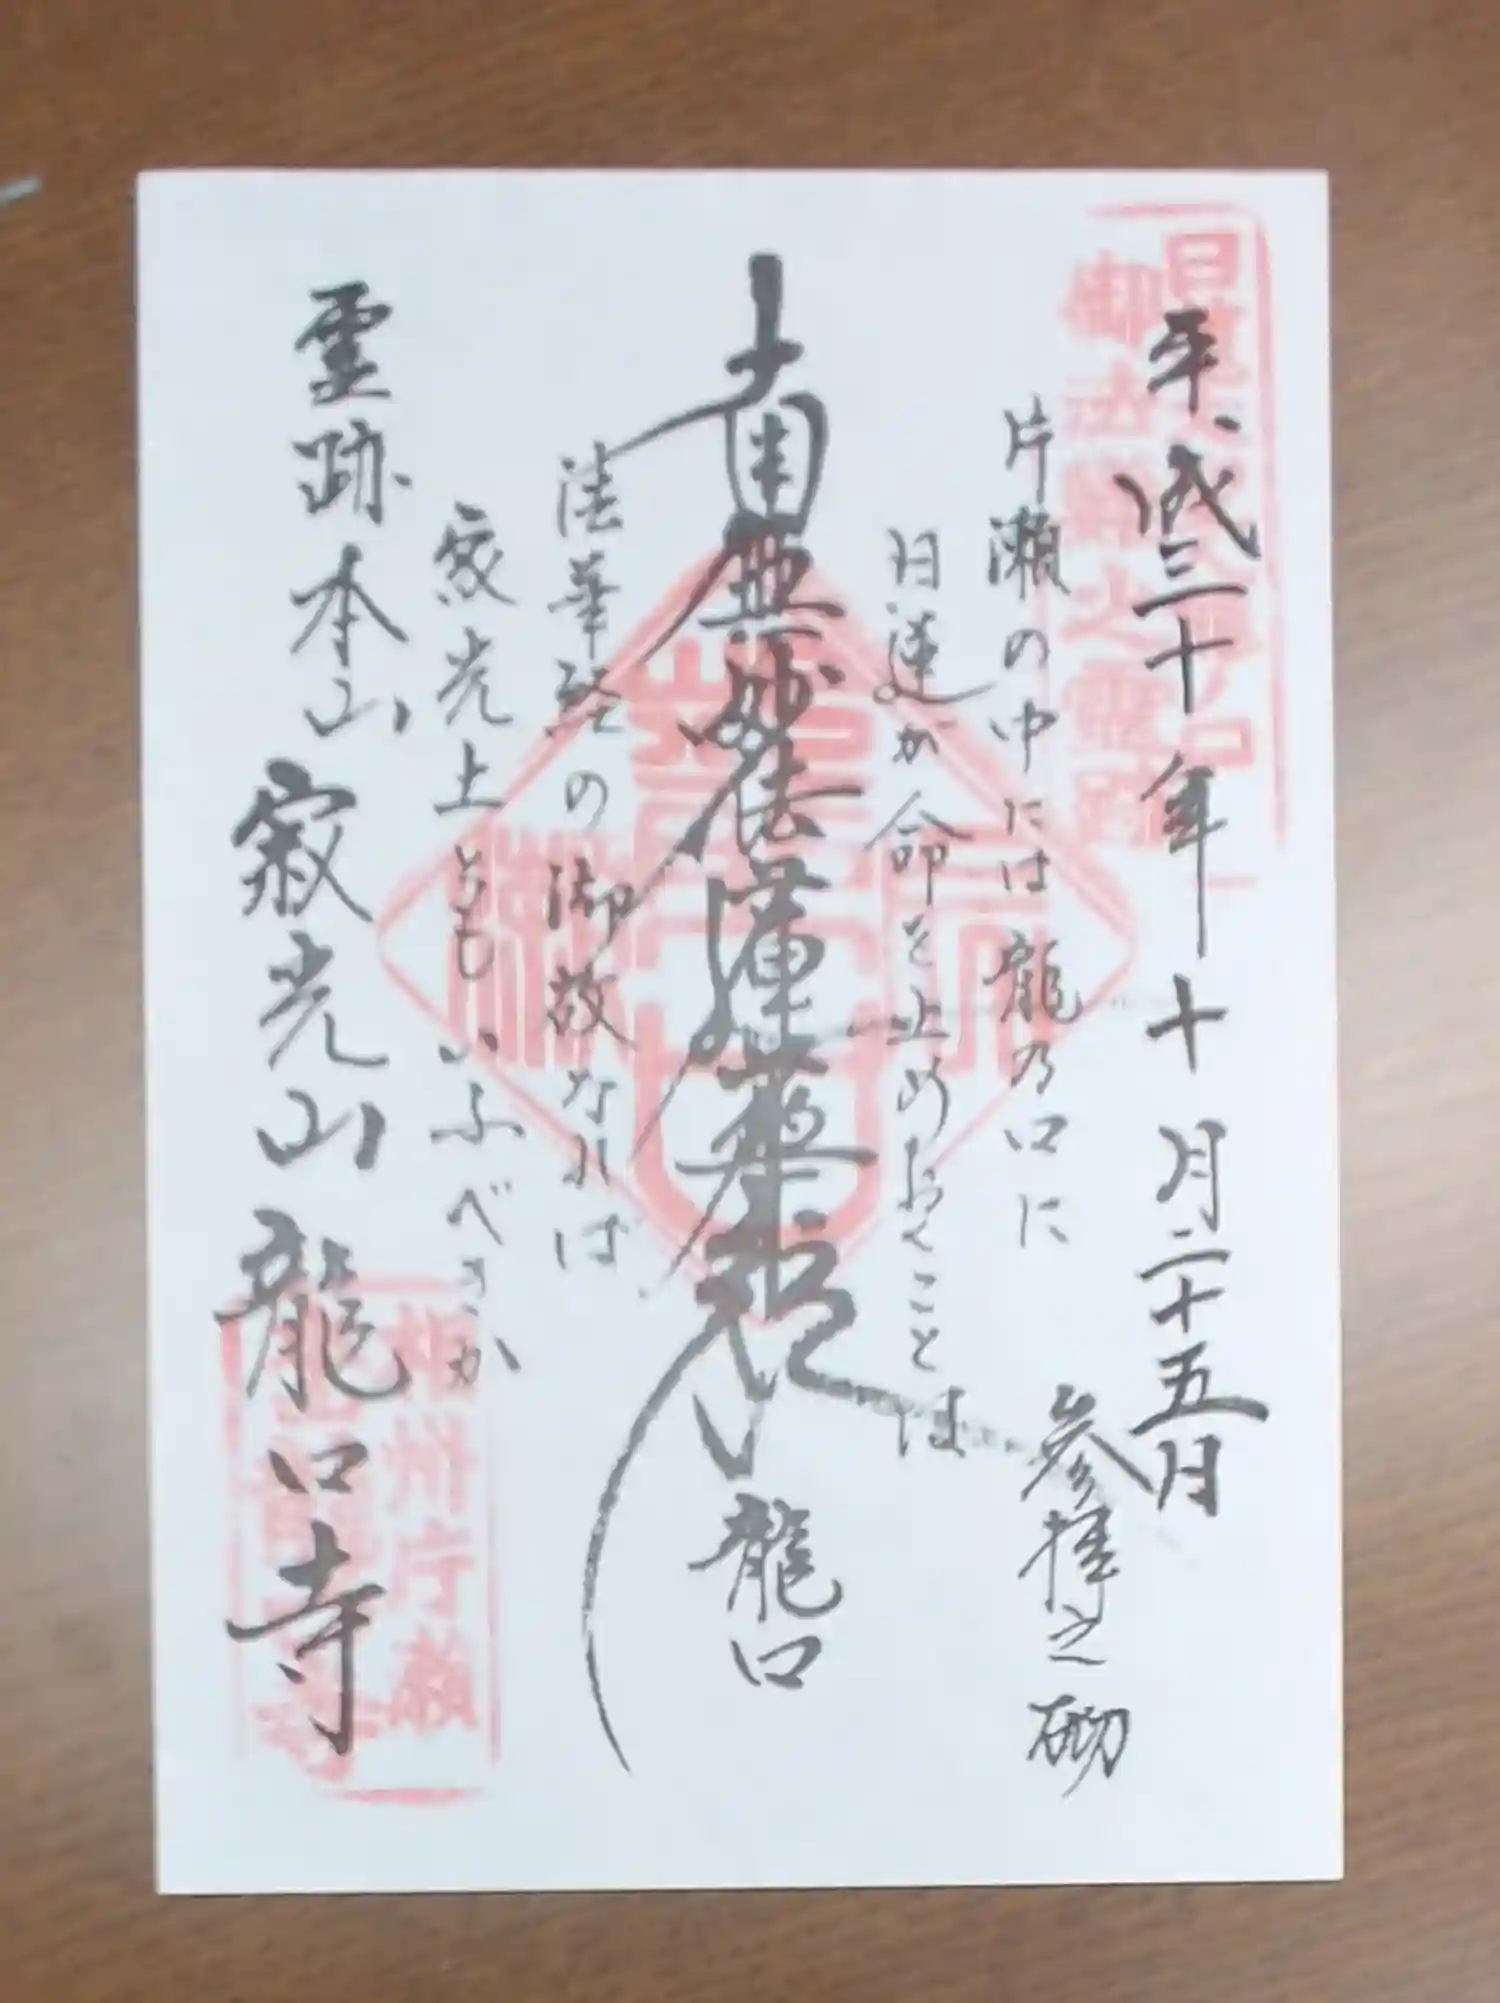 平成三十年十月二十五日
参拝之砌
片瀬の中には龍の口に
日蓮が命を止めおくことは
南無妙法蓮華経
龍口
法華経の御故なれば
寂光土ともいふべきか
霊跡本山 寂光山 龍口寺
御法難之霊跡
相州片瀬